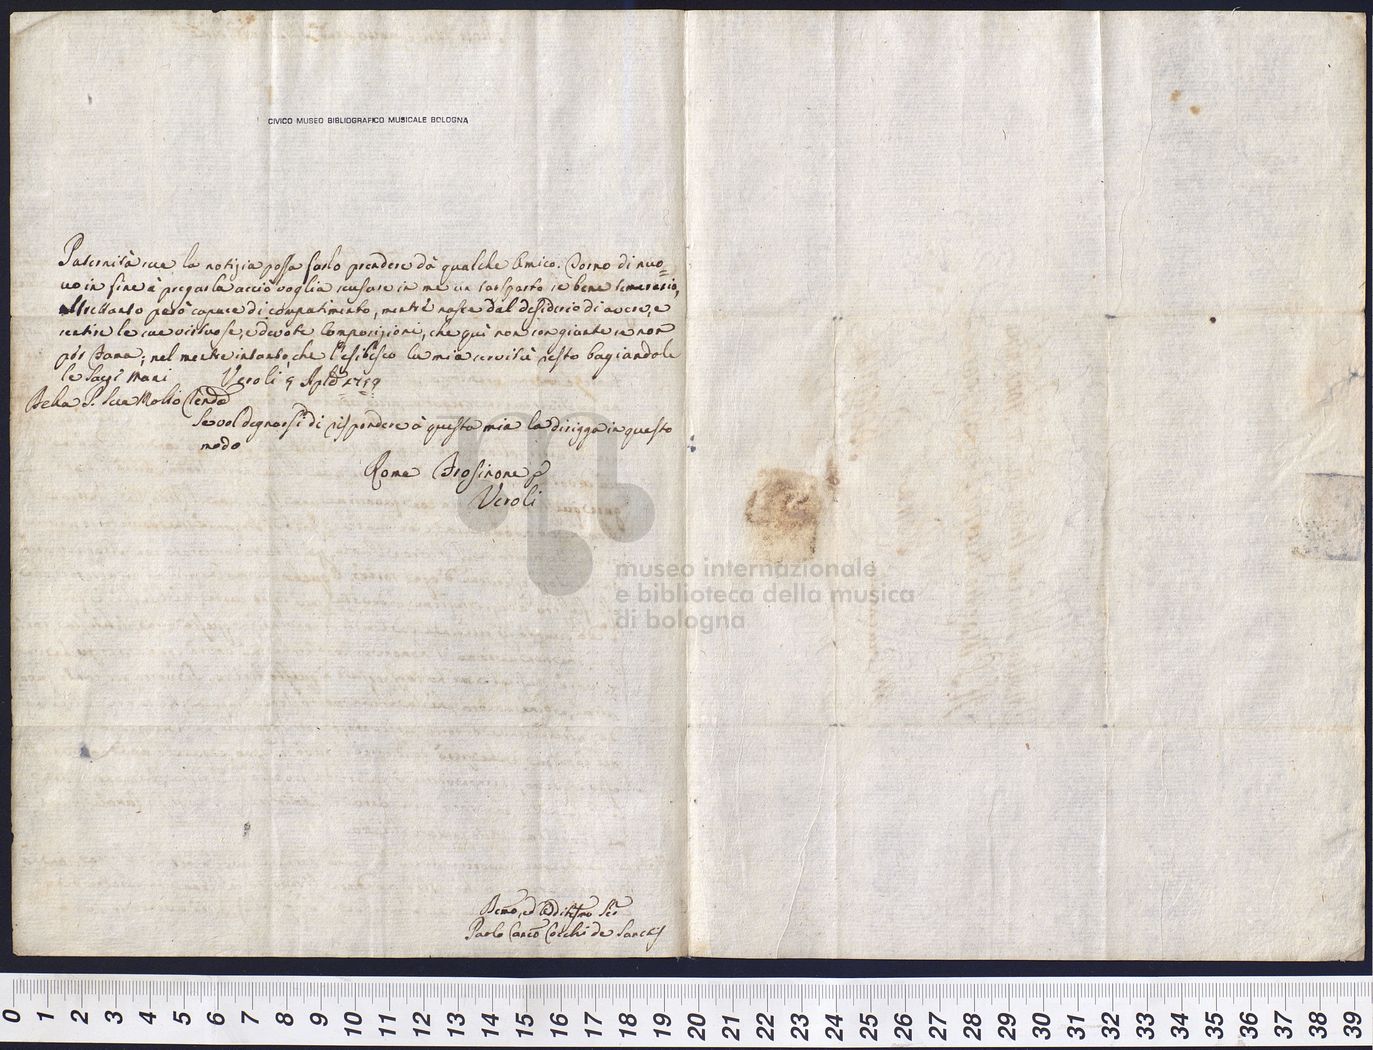 CIVICO MUSEO BIBLIOGRAFICO MUSICALE BOLOGNA
Paternità sue la notizia possa farlo prendere dà qualche Amico. Torno di nuo=
vo in fine à pregarla acciò voglia scusare in me un trasporto se bene temerario,
altrettanto però capace di compatimento, mentr'è nasce dal desiderio di avere, e
sentire le sue virtuose, e devote Composizioni, che quì non son giante se non
per Fama; nel mentre intanto che l'esibisco la mia servitù resto bagiandole
le Sagre Mani Veroli 9
Della P. Sua Molto Renda
Se vol degnarsi di rispondere à questa mia la dirigga in questo
modo
Roma Frosinone p
Veroli
museo internazionale
e biblioteca della musica
di bologna
Paolo Cocchi de Sanctis
0 1 2 3 4 5 6 7 8 9 10 11 12 13 14 15 16 17 18 19 20 21 22 23 24 25 26 27 28 29 30 31 32 33 34 35 36 37 38 39